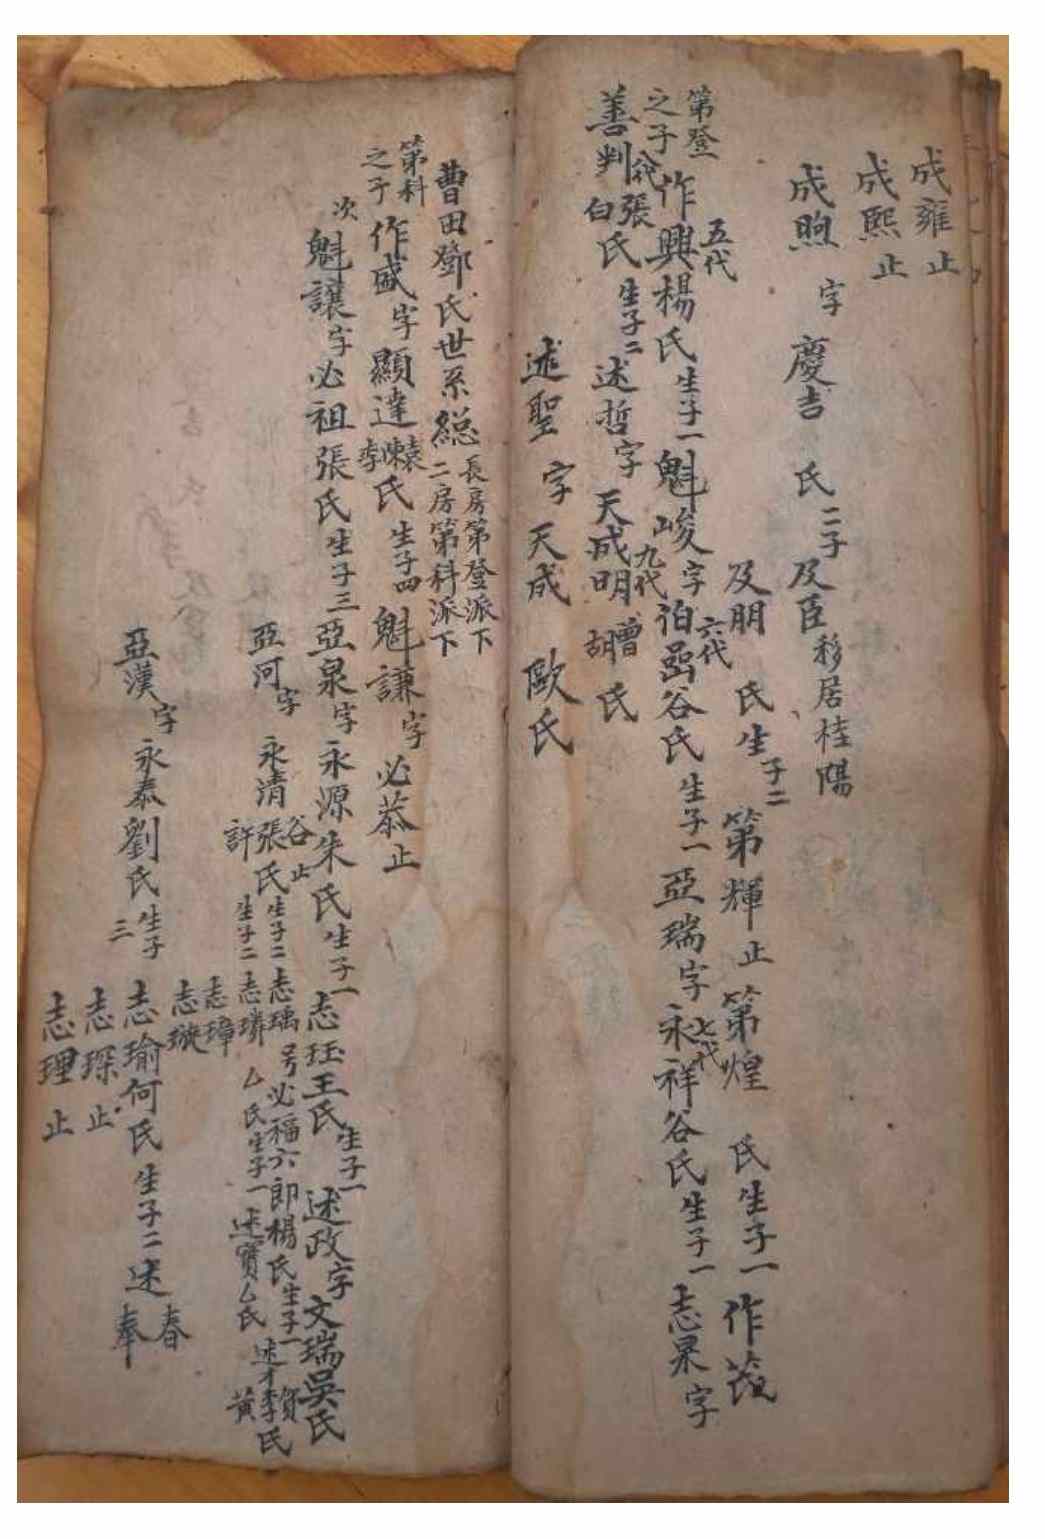 成雍止
成熙止
成煦字慶吉氏二子及臣移居桂陽
及朋氏生子二第輝止第煌氏生子一作茂
第登之子
五代
作興楊氏生子一魁峻字伯嵒谷氏生子一亞瑞字永祥谷氏生子一志杲字
六代
七代
八代
善判張白氏生子二述哲字天成明曾胡氏
九代
述聖字天成歐氏
曹田鄧氏世系總
長房第登派下
二房第科派下
第科之子
作盛字顯達袁陳李氏生子四魁謙字必恭止
次魁讓字必祖張氏生子三亞泉字永源朱氏生子一志珏王氏生子一述政字文瑞吳氏
亞河字永清谷止張許氏生子二生子二
志瑀号必福六郎楊氏生子一述才賀李黃氏
志璘厶氏生子一述寶厶氏
志璋
志璇
亞漢字永泰劉氏生子三
志瑜何氏生子二述春奉
志琛止
志理止